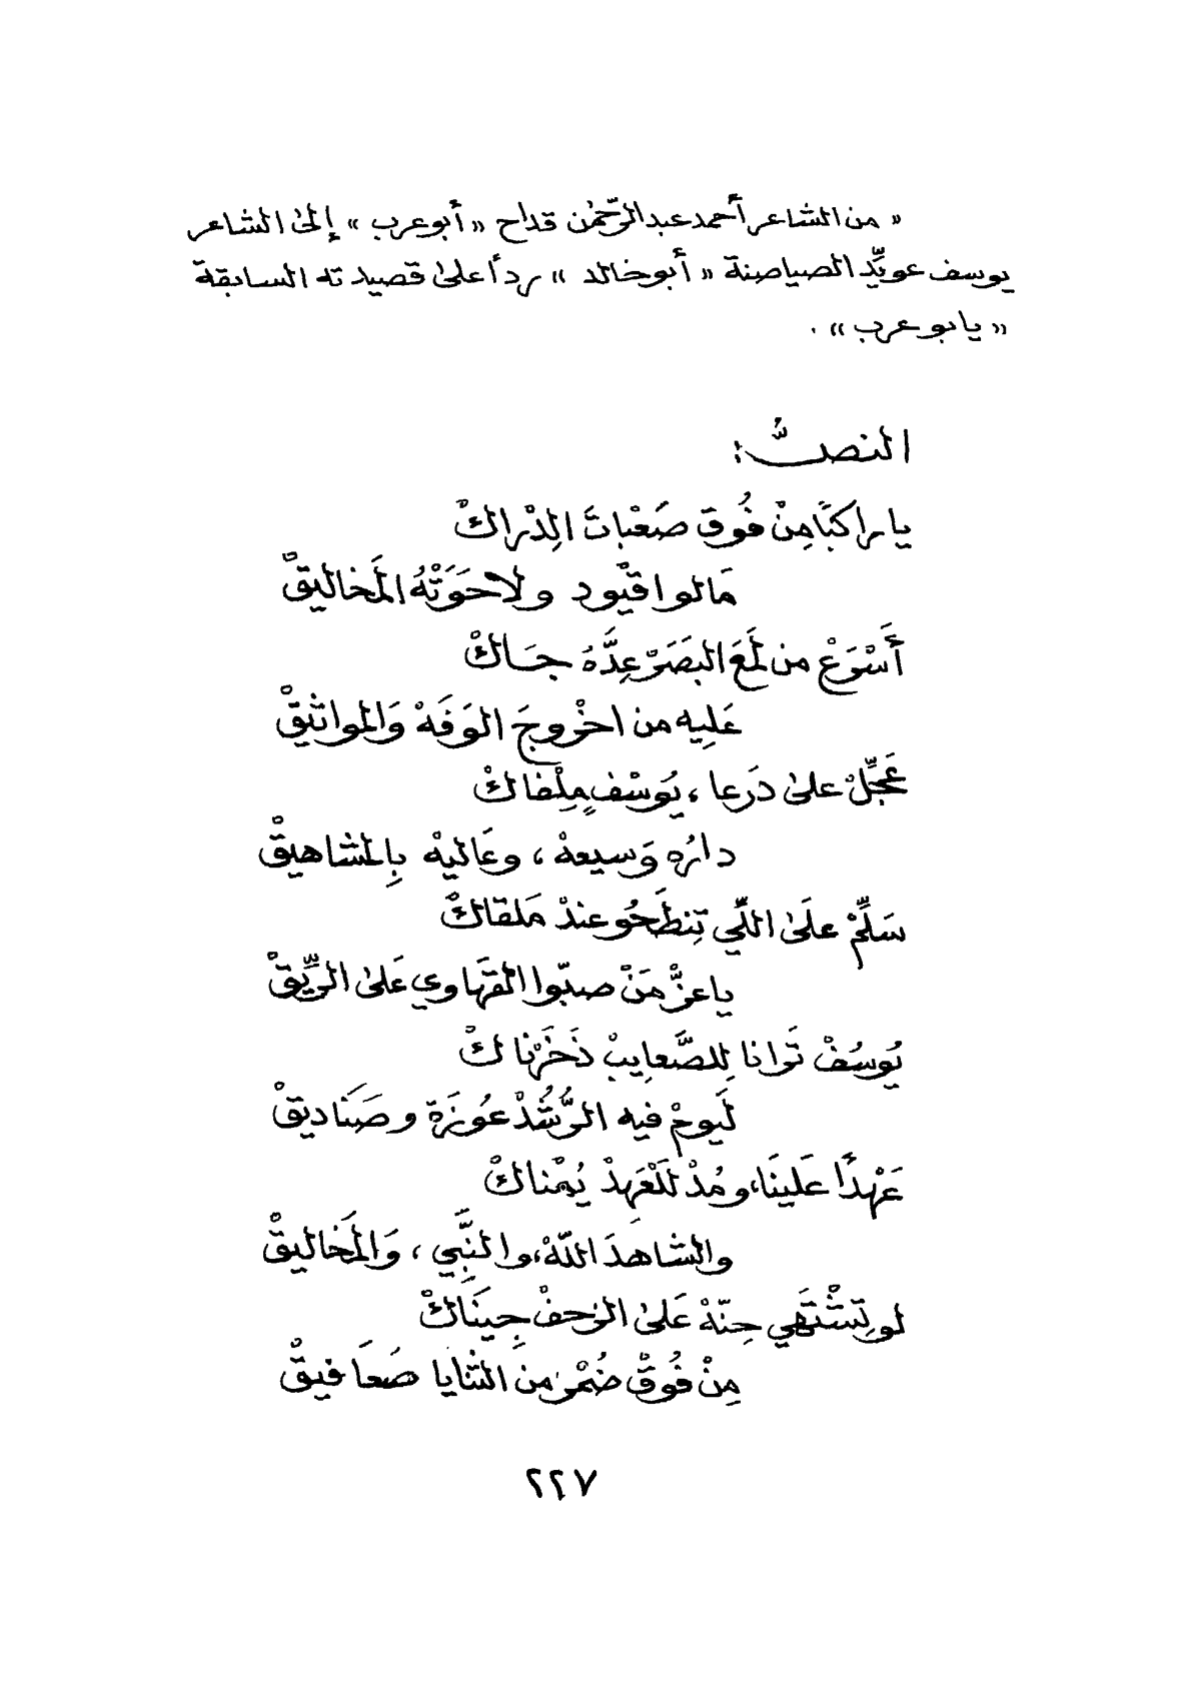 « من الشاعر أحمد عبد الرّحمٰن قداح « أبو عرب » إلىٰ الشاعر
يوسف عويِّد الصياصنة « أبو خالد » رداً علىٰ قصيدته السابقة
« يا بو عرب » .
النصُّ :
يا راكبًا مِنْ فُوق صَعْباتَ الِدْراكْ
مَالوا قْيُود ولا حَوَتْهُ المَخاليقْ
أَسْرَعْ من لَمَعَ البَصَرْ عِدَّهُ جَاكْ
عَلِيه من اخْروجَ الوَفَهْ وَالمواثيقْ
عَجِّلْ علىٰ دَرعا ، يُوَسْفٍ مِلْفاكْ
دارُه وَسيعهْ ، وعَاليهْ بِالمشاهيقْ
سَلِّمْ علَىٰ اللّي تِنطَحُو عندْ مَلقاكْ
يا عزّْ مَنْ صبّوا القَهَاوي عَلىٰ الرِّيقْ
يُوسُفْ تَرانا لِلصَّعايبْ ذَخَرْناكْ
لَيومْ فيه الرُّشُدْ عُوزَة وصَنَاديقْ
عَهْدًا عَلينَا، ومُدْ لَلعَهدْ يُمْناكْ
والشاهدَ اللّهْ، والنَّبِي ، وَالمَخاليقْ
لو تِشْتَهي حِنّهْ عَلىٰ الزحفْ جِينَاكْ
مِنْ فُوقْ ضُمْرٍ منَ الثنايا صَعَافيقْ
٢٢٧